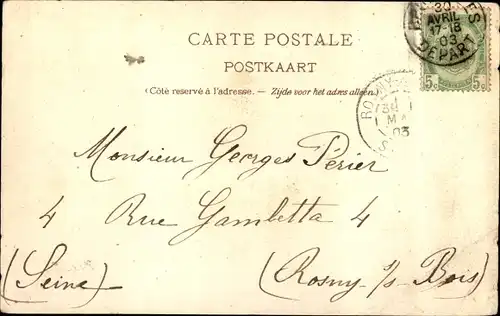 CARTE POSTALE
POSTKAART
(Côté reservé à l'adresse. — Zijde voor het adres alleen.)
30
AVRIL
17-18
03
DEPART
5c 5c
ROSNY
1
MA
03
Monsieur Georges Périer
4 Rue Gambetta 4
(Seine) (Rosny s/s Bois)